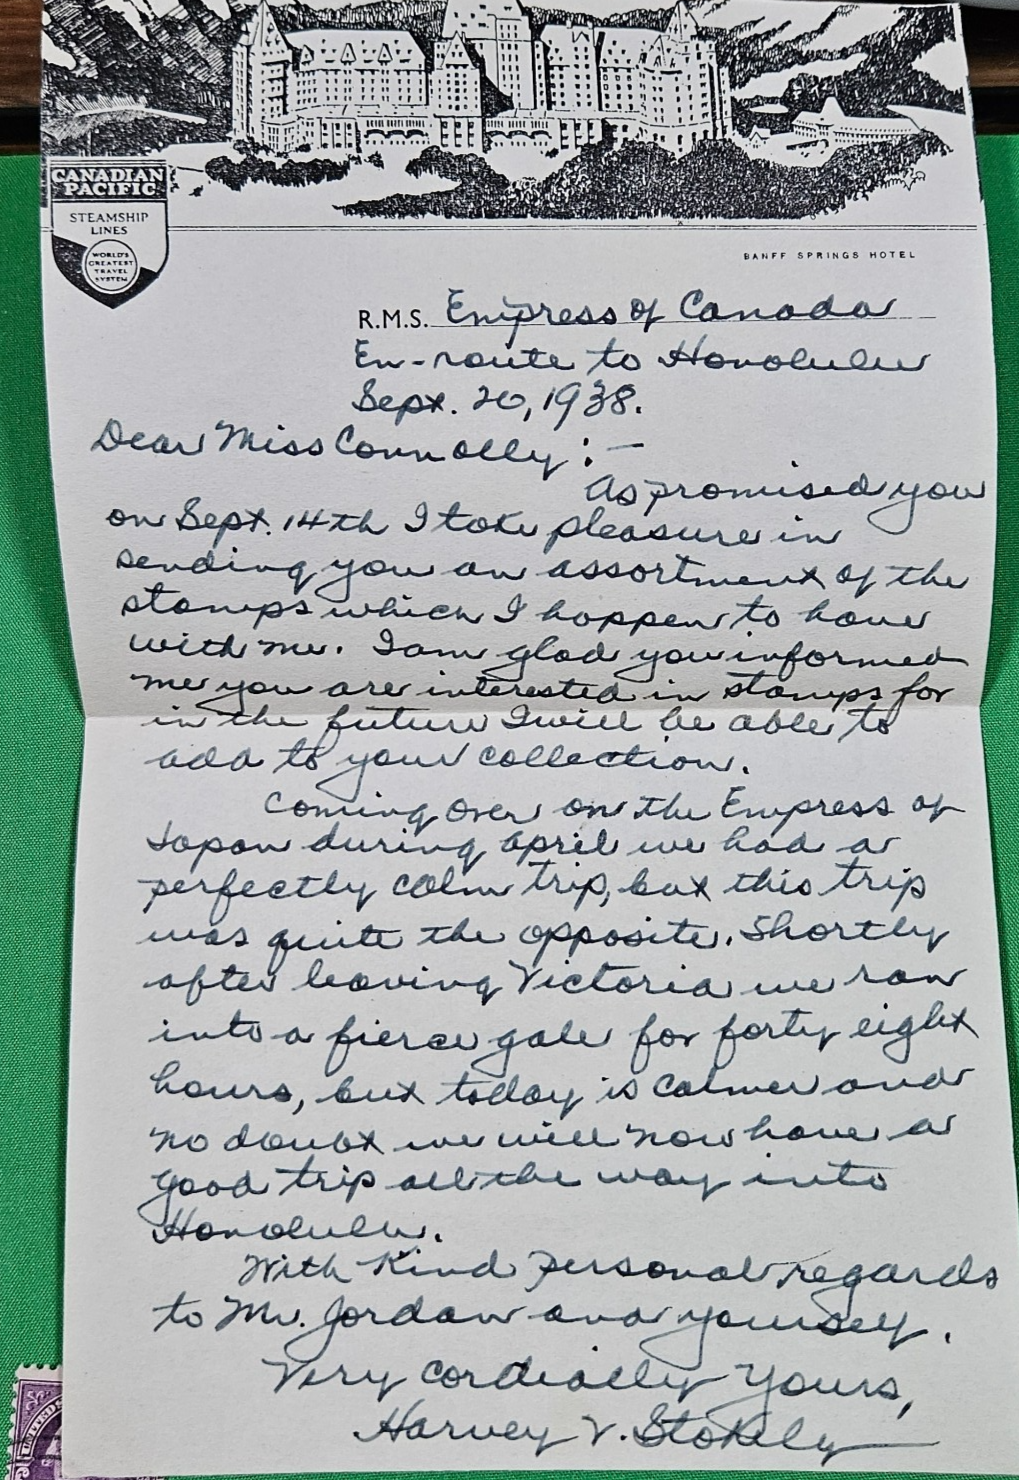 CANADIAN
PACIFIC
STEAMSHIP
LINES
WORLD'S
GREATEST
TRAVEL
SYSTEM
BANFF SPRINGS HOTEL
R.M.S. Empress of Canada
En-route to Honolulu
Sept. 20, 1938.
Dear Miss Connolly:—
As promised you
on Sept. 14th I take pleasure in
sending you an assortment of the
stamps which I happen to have
with me. I am glad you informed
me you are interested in stamps for
in the future I will be able to
add to your collection.
Coming over on the Empress of
Japan during April we had a
perfectly calm trip, but this trip
was quite the opposite. Shortly
after leaving Victoria we ran
into a fierce gale for forty eight
hours, but today is calmer and
no doubt we will now have a
good trip all the way into
Honolulu.
With kind personal regards
to Mr. Jordan and yourself.
Very cordially yours,
Harvey V. Stokely